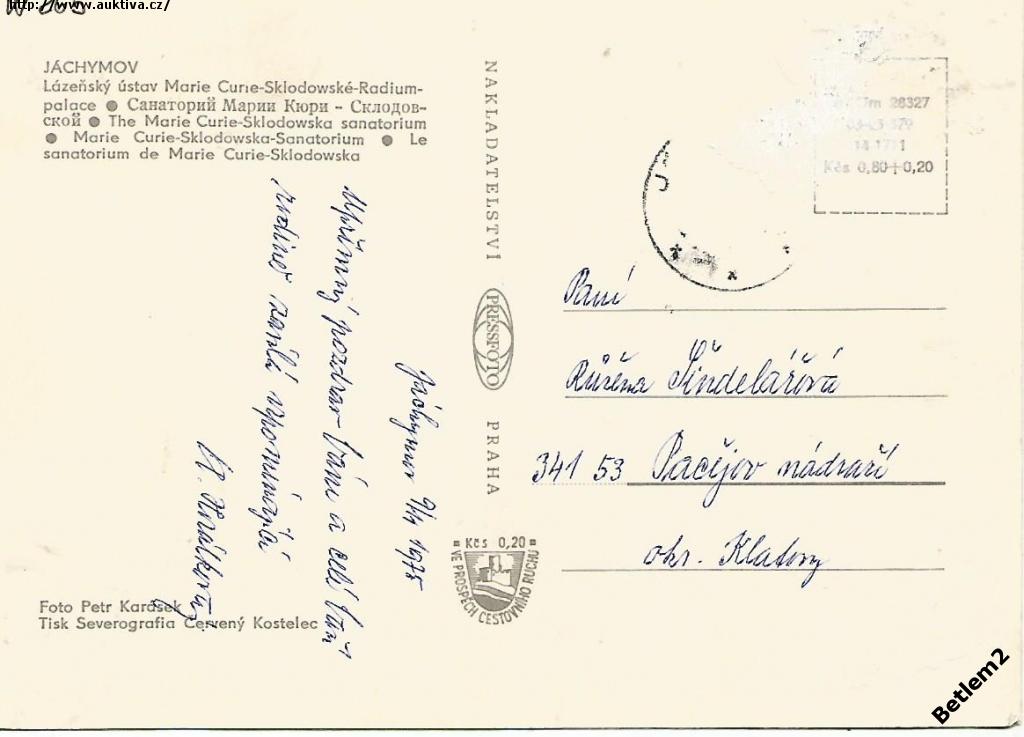 http://www.auktiva.cz/
JÁCHYMOV
Lázeňský ústav Marie Curie-Sklodowské-Radium-
palace ● Санаторий Марии Кюри - Склодов-
ской ● The Marie Curie-Sklodowska sanatorium
● Marie Curie-Sklodowska-Sanatorium ● Le
sanatorium de Marie Curie-Sklodowska
Jáchymov 1975
Upřímný pozdrav Vám a celé Vaší
rodině zasílá vzpomínající
NAKLADATELSTVÍ
PRESSFOTO
PRAHA
Kčs 0,20
VE PROSPĚCH CESTOVNÍHO RUCHU
28327
Kčs 0,80+0,20
Paní
Růžena Šindelářová
341 53 Pačejov nádraží
okr. Klatovy
Foto Petr Karásek
Tisk Severografia Červený Kostelec
Betlem2